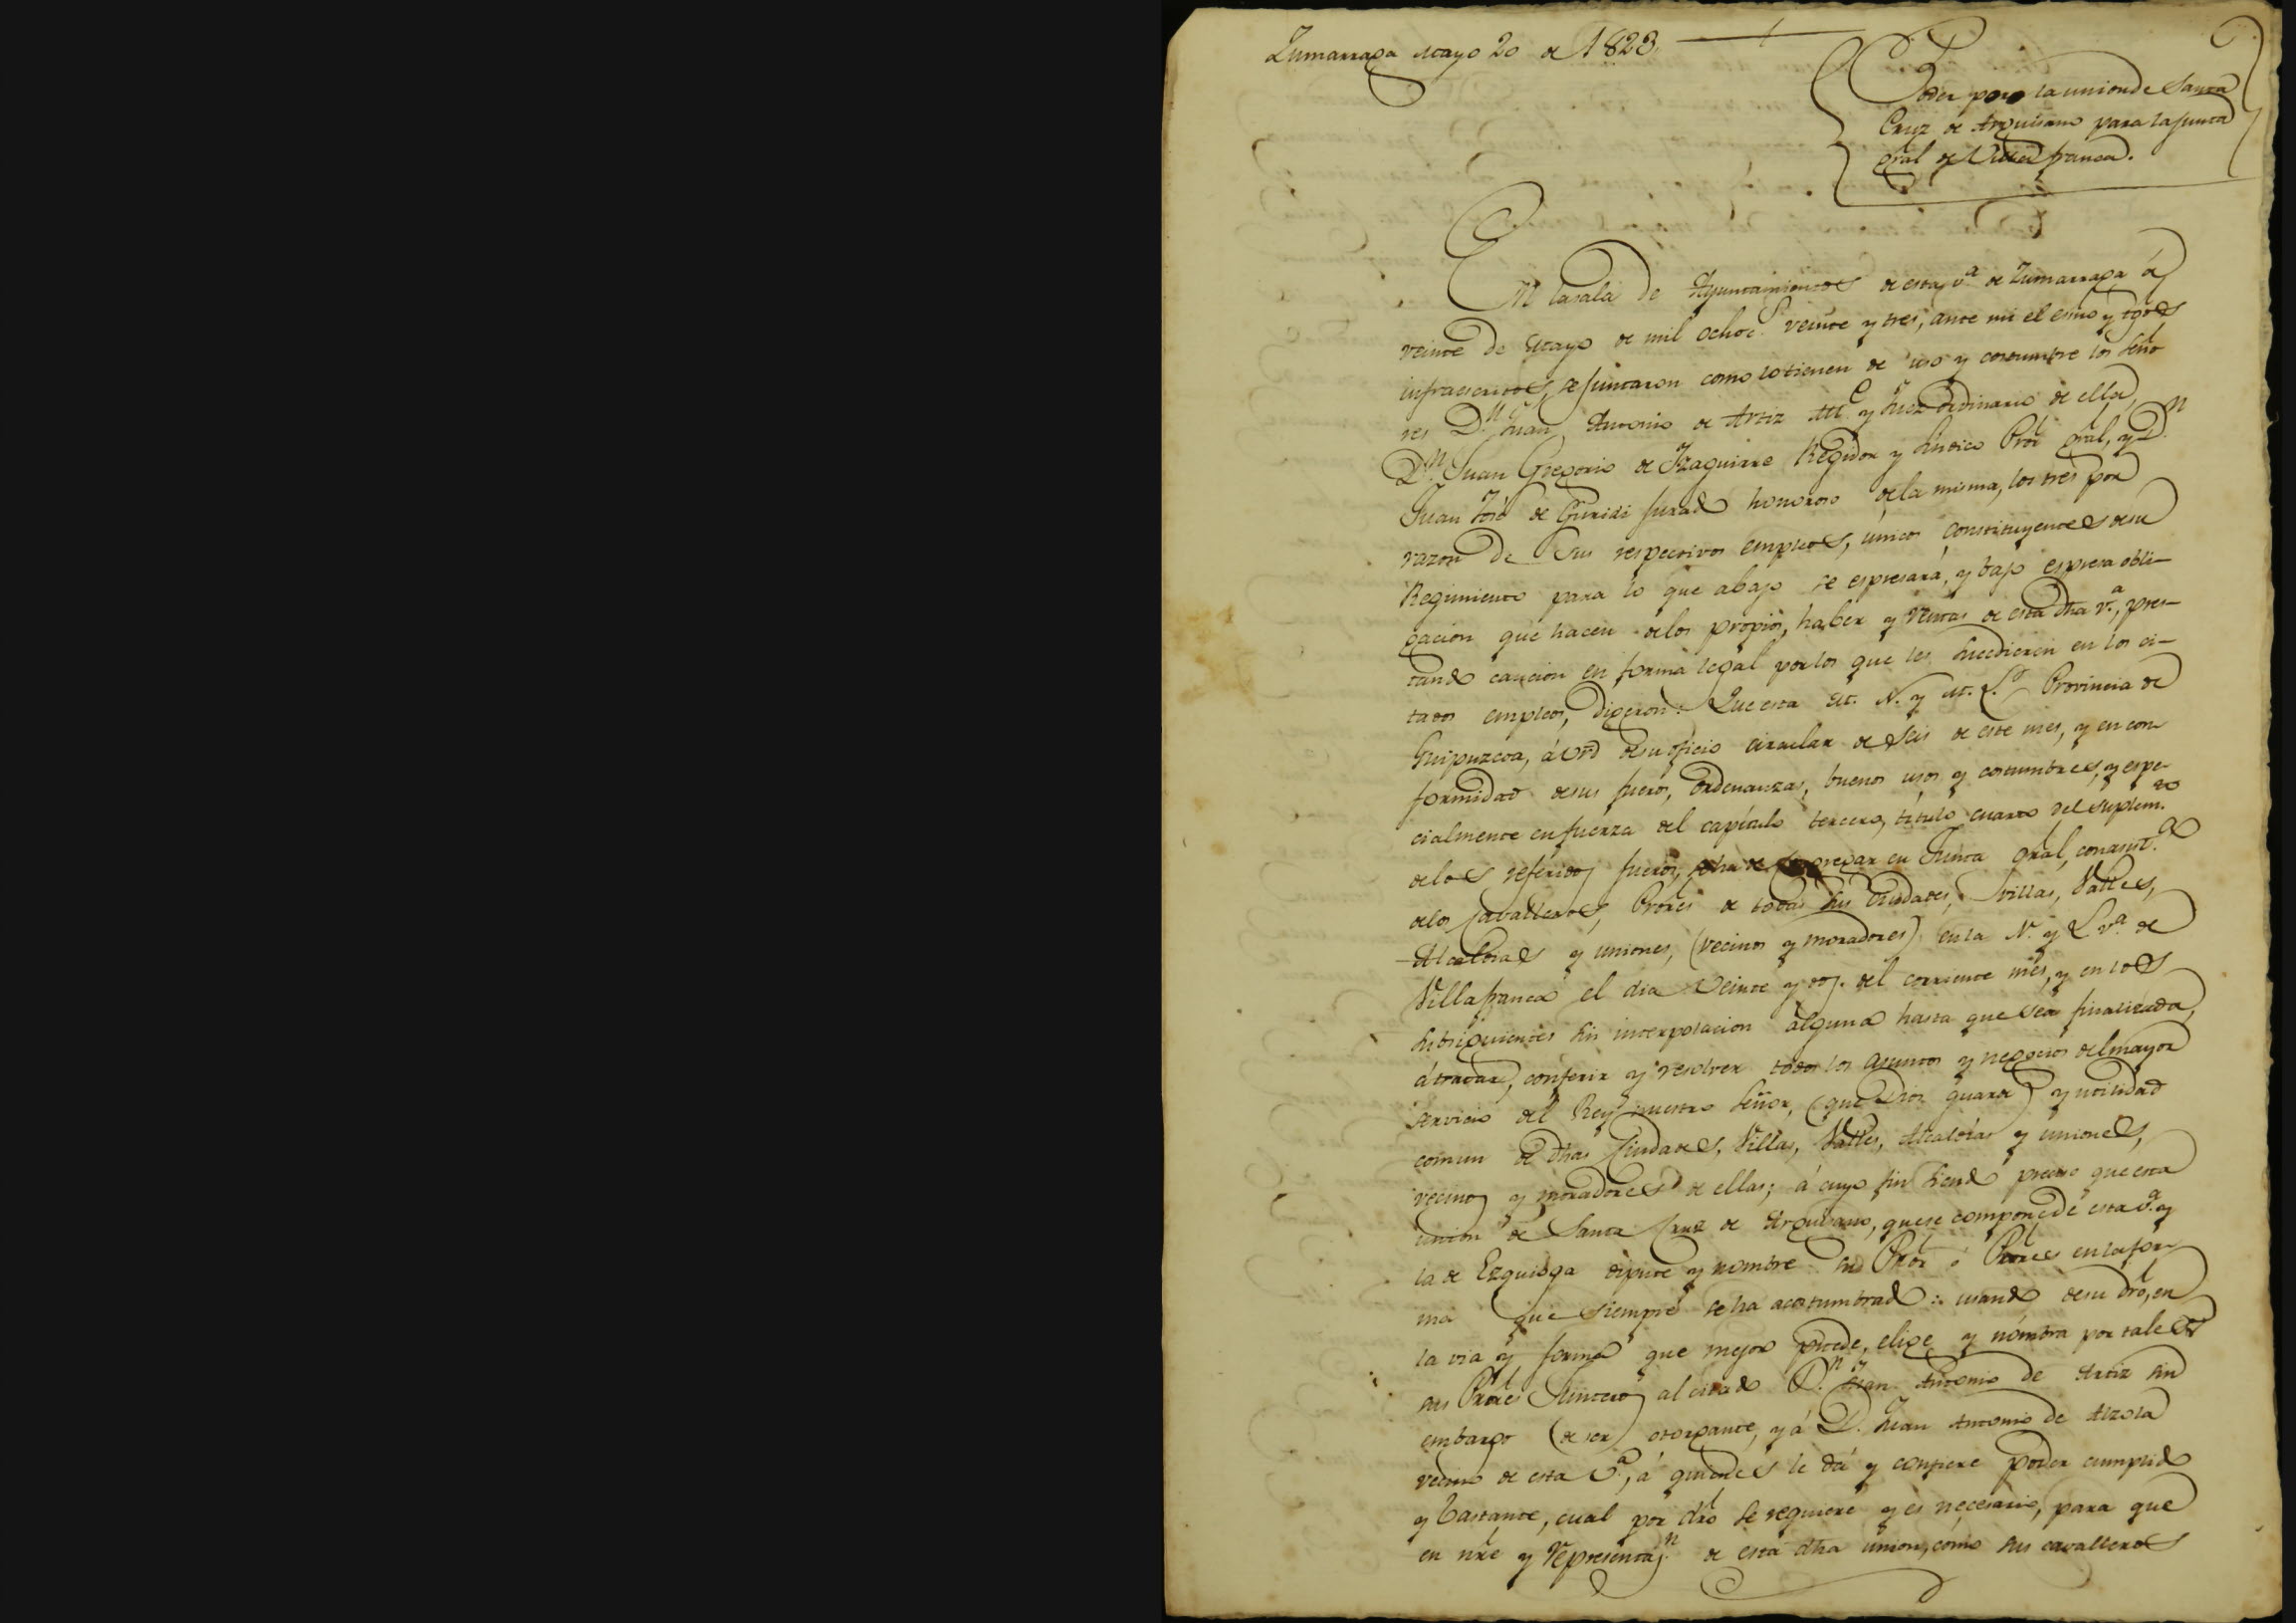 Zumarraga Mayo 20 de 1823.
Poder por la union de Santa
Cruz de Arguisano para la Junta
gral de Villafranca.
En la sala de Ayuntamientos de esta v.a de Zumarraga á
veinte de Mayo de mil ochoc.s veinte y tres, ante mi el esno y tgos
infraescritos, se juntaron como lo tienen de uso y costumbre los Seño
res D.n Juan Antonio de Artiz Alc.e y Juez ordinario de ella,
D.n Juan Gregorio de Yzaguirre Regidor y Sindico Pror gral, y D.n
Juan José de Guridi jurado honoroso de la misma, los tres por
razon de sus respectivos empleos, unicos constituyentes de su
Regimiento para lo que abajo se espresará, y bajo espresa obli-
gacion que hacen de los propios, haber y rentas de esta dha v.a, pres-
tando caucion en forma legal por los que les sucedieren en los ci-
tados empleos, digeron: Que esta M. N. y M. L. Provincia de
Guipuzcoa, á de su oficio circular de seis de este mes, y en con
formidad de sus fueros, ordenanzas, buenos usos y costumbres, y espe-
cialmente en fuerza del capítulo tercero, título cuarto del suplem.to
de los referidos fueros, se ha de congregar en Junta gral, con asist.a
de los cavalleros, Prores de todas sus Ciudades, Villas, Valles,
Alcaldias y uniones, (vecinos y moradores) en la N. y L. v.a de
Villafranca el dia veinte y dos del corriente mes, y en los
subsiguientes sin interpolacion alguna hasta que sea finalizada,
á tratar, conferir y resolver todos los asuntos y negocios del mayor
servicio del Rey nuestro Señor, (que Dios guarde) y utilidad
comun de dhas Ciudades, Villas, Valles, Alcaldías y uniones,
vecinos y moradores de ellas; á cuyo fin siendo preciso que esta
union de Santa Cruz de Arguisano, que se compone de esta v.a y
la de Ezquioga dipute y nombre su Pror ó Prores en la for-
ma que siempre se ha acostumbrado: usando de su dro, en
la via y forma que mejor puede, elige y nombra por tales
sus Prores Junteros al citado D.n Juan Antonio de Artiz sin
embargo (de ser) otorgante, y á D. Juan Antonio de Alzola
vecino de esta v.a, á quienes le dá y confiere poder cumplido
y bastante, cual por dro se requiere y es necesario, para que
en nre y representa.n de esta dha union, como sus cavalleros